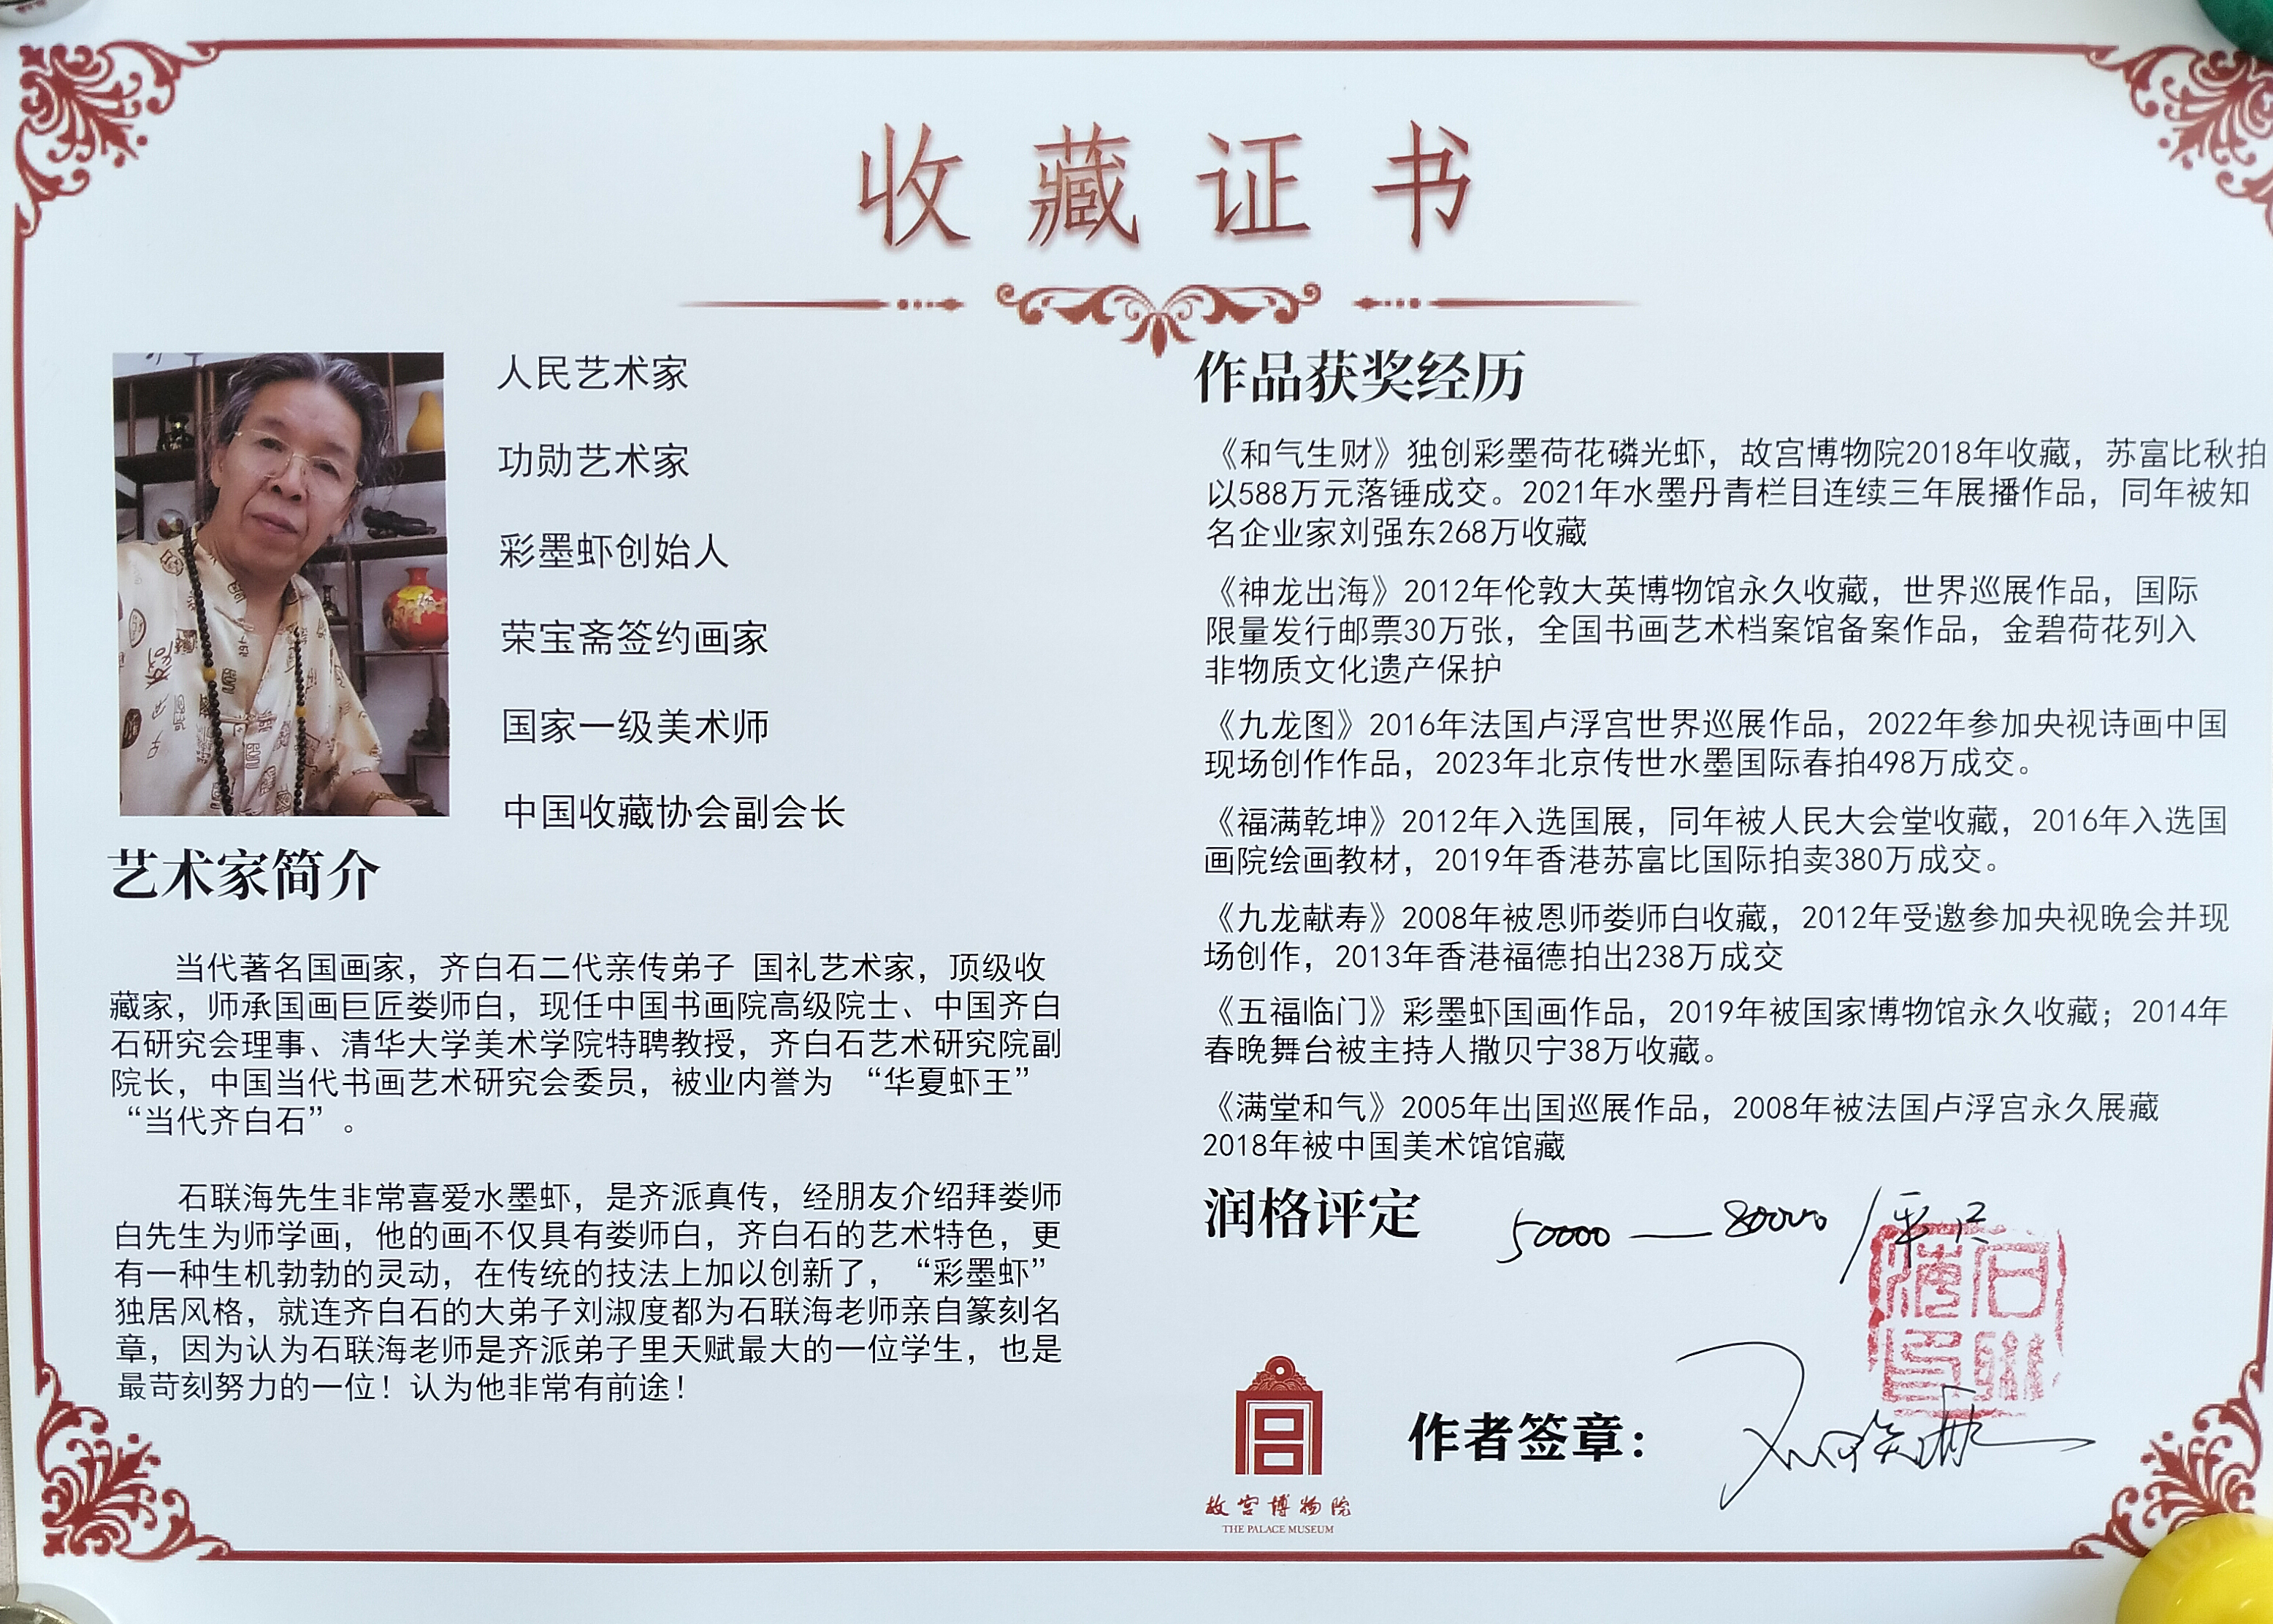 收藏证书
人民艺术家
功勋艺术家
彩墨虾创始人
荣宝斋签约画家
国家一级美术师
中国收藏协会副会长
艺术家简介
当代著名国画家，齐白石二代亲传弟子 国礼艺术家，顶级收
藏家，师承国画巨匠娄师白，现任中国书画院高级院士、中国齐白
石研究会理事、清华大学美术学院特聘教授，齐白石艺术研究院副
院长，中国当代书画艺术研究会委员，被业内誉为 “华夏虾王”
“当代齐白石”。
石联海先生非常喜爱水墨虾，是齐派真传，经朋友介绍拜娄师
白先生为师学画，他的画不仅具有娄师白，齐白石的艺术特色，更
有一种生机勃勃的灵动，在传统的技法上加以创新了，“彩墨虾”
独居风格，就连齐白石的大弟子刘淑度都为石联海老师亲自篆刻名
章，因为认为石联海老师是齐派弟子里天赋最大的一位学生，也是
最苛刻努力的一位！认为他非常有前途！
作品获奖经历
《和气生财》独创彩墨荷花磷光虾，故宫博物院2018年收藏，苏富比秋拍
以588万元落锤成交。2021年水墨丹青栏目连续三年展播作品，同年被知
名企业家刘强东268万收藏
《神龙出海》2012年伦敦大英博物馆永久收藏，世界巡展作品，国际
限量发行邮票30万张，全国书画艺术档案馆备案作品，金碧荷花列入
非物质文化遗产保护
《九龙图》2016年法国卢浮宫世界巡展作品，2022年参加央视诗画中国
现场创作作品，2023年北京传世水墨国际春拍498万成交。
《福满乾坤》2012年入选国展，同年被人民大会堂收藏，2016年入选国
画院绘画教材，2019年香港苏富比国际拍卖380万成交。
《九龙献寿》2008年被恩师娄师白收藏，2012年受邀参加央视晚会并现
场创作，2013年香港福德拍出238万成交
《五福临门》彩墨虾国画作品，2019年被国家博物馆永久收藏；2014年
春晚舞台被主持人撒贝宁38万收藏。
《满堂和气》2005年出国巡展作品，2008年被法国卢浮宫永久展藏
2018年被中国美术馆馆藏
润格评定 50000—80000/平尺
石联海印
作者签章：
故宫博物院
THE PALACE MUSEUM